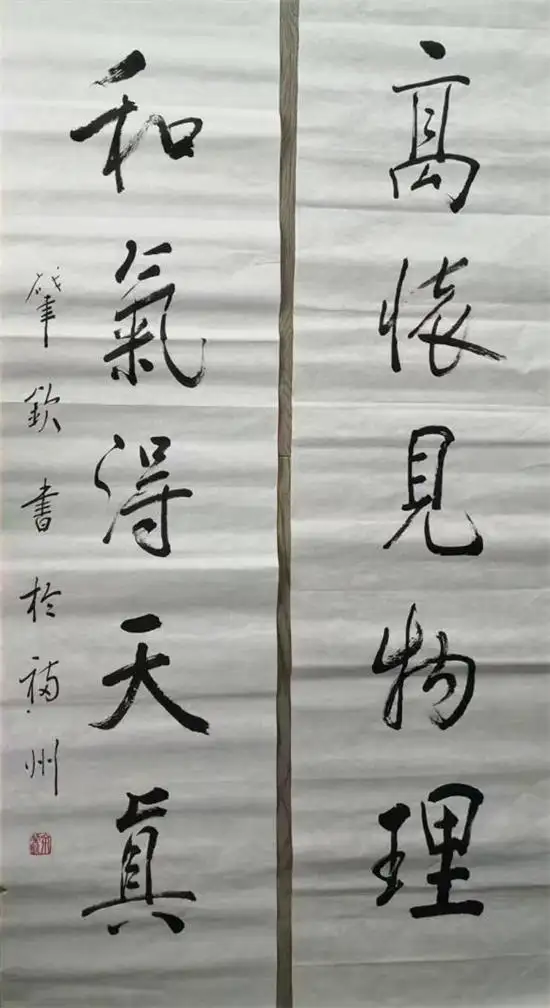 高懷見物理
和氣得天真
肇欽書於福州